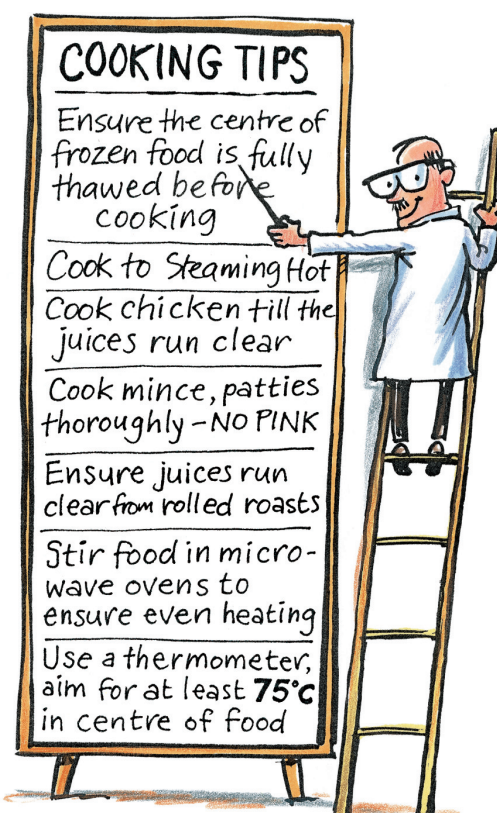 COOKING TIPS
Ensure the centre of
frozen food is fully
thawed before
cooking
Cook to Steaming Hot
Cook chicken till the
juices run clear
Cook mince, patties
thoroughly - NO PINK
Ensure juices run
clear from rolled roasts
Stir food in micro-
wave ovens to
ensure even heating
Use a thermometer,
aim for at least 75°c
in centre of food